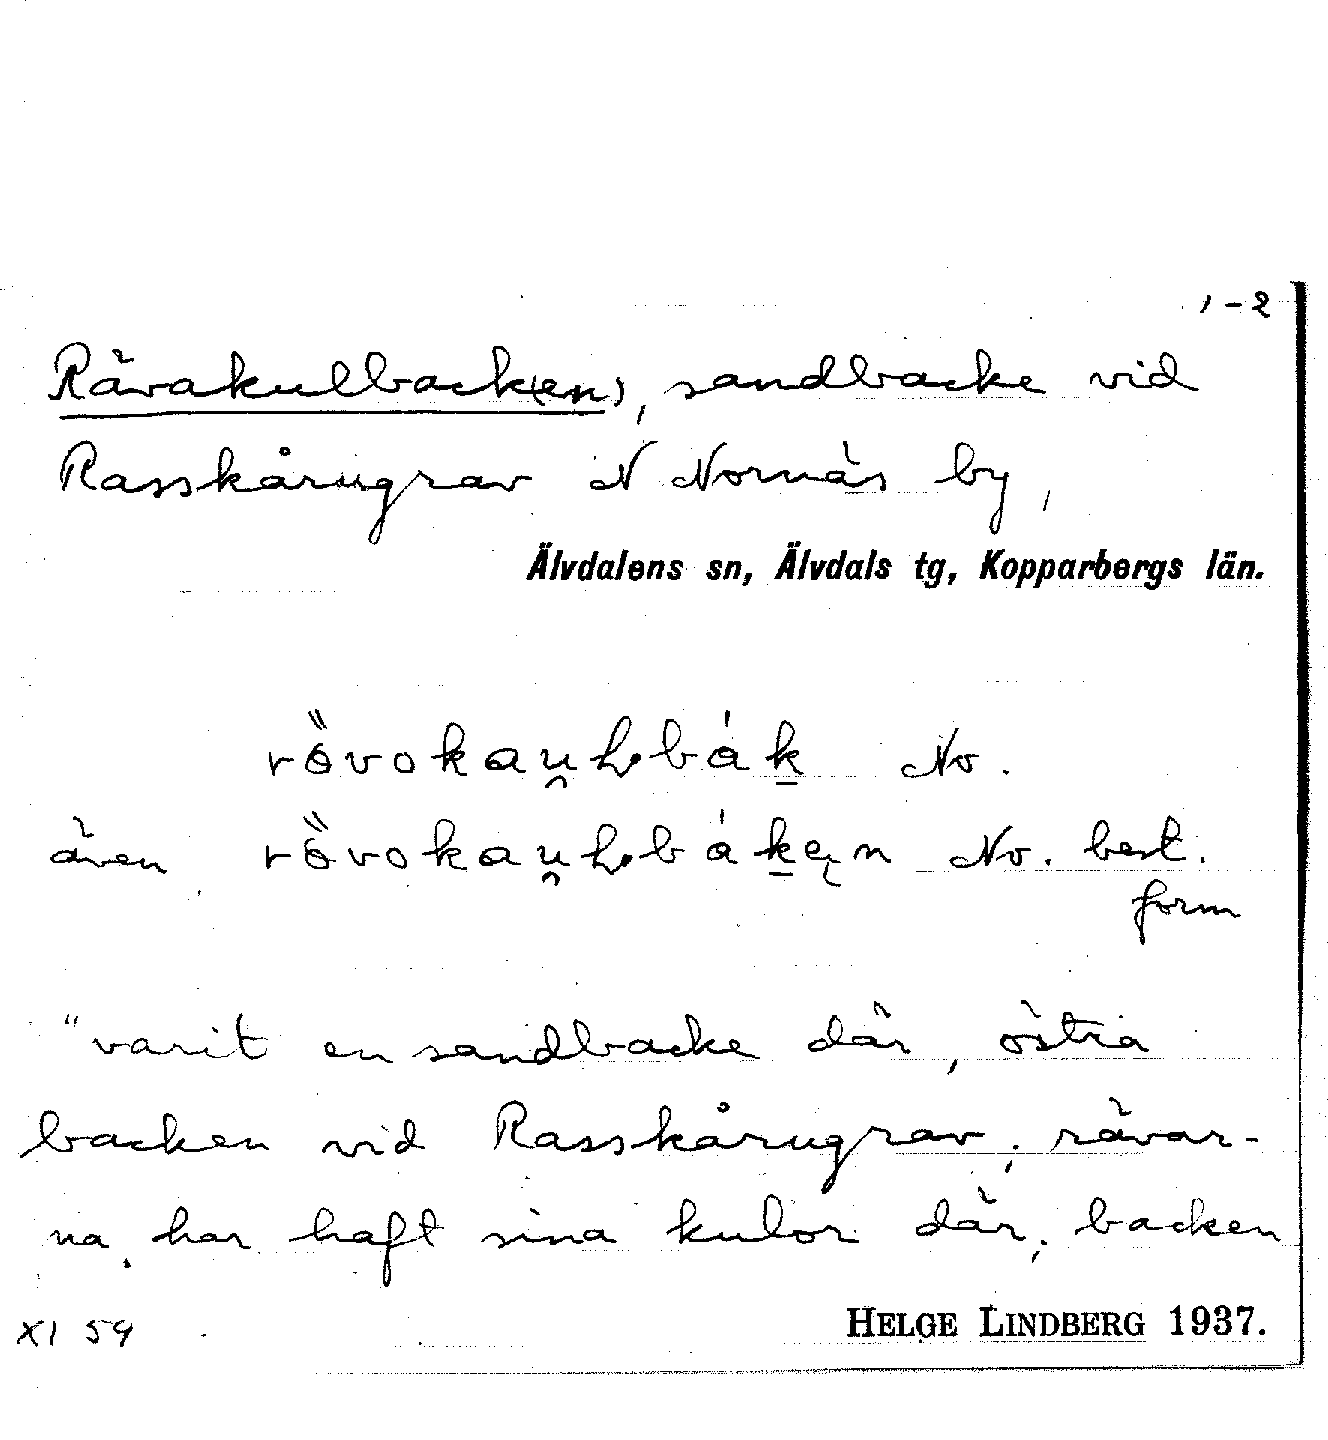 1-2
Rävakulback(en), sandbacke vid
Rasskårugrav N Nornäs by,
Älvdalens sn, Älvdals tg, Kopparbergs län.
No.
även No. best.
form
"varit en sandbacke där, östra
backen vid Rasskårugrav; rävar-
na har haft sina kulor där; backen
XI 59
HELGE LINDBERG 1937.